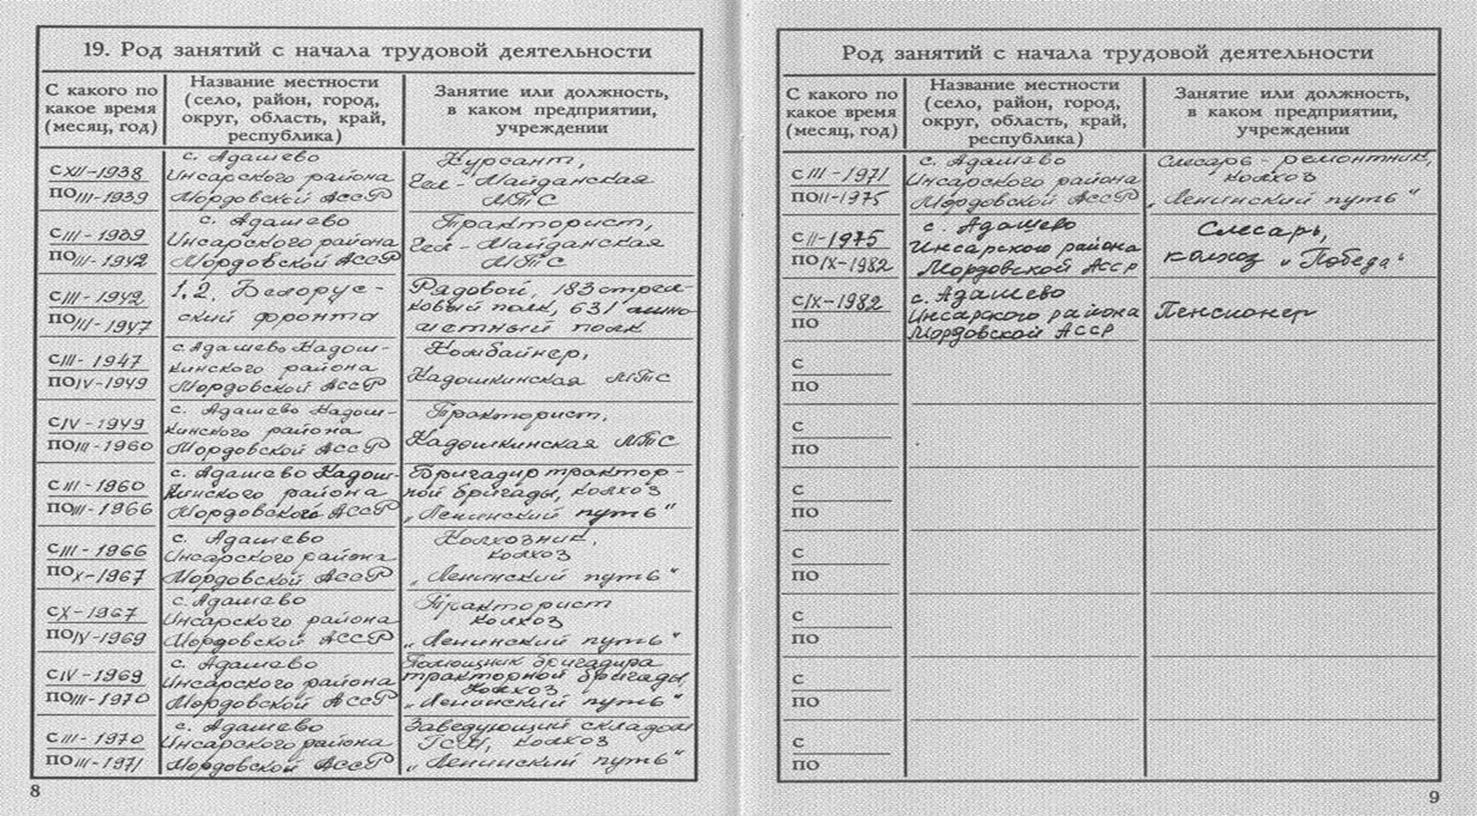 19. Род занятий с начала трудовой деятельности
С какого по какое время (месяц, год)
Название местности (село, район, город, округ, область, край, республика)
Занятие или должность, в каком предприятии, учреждении
с XII-1938
по III-1939
с. Адашево
Инсарского района
Мордовской АССР
Курсант,
Майданская
МТС
с III-1939
по III-1942
с. Адашево
Инсарского района
Мордовской АССР
Тракторист,
Майданская
МТС
с III-1942
по III-1947
1, 2, Белорус-
ский фронта
Рядовой, 183 стрел-
ковый полк, 631 мино
метный полк
с III-1947
по IV-1949
с. Адашево Кадош-
кинского района
Мордовской АССР
Комбайнер,
Кадошкинская МТС
с IV-1949
по III-1960
с. Адашево Кадош-
кинского района
Мордовской АССР
Тракторист,
Кадошкинская МТС
с III-1960
по III-1966
с. Адашево Кадош-
кинского района
Мордовской АССР
Бригадир трактор-
ной бригады, колхоз
„Ленинский путь"
с III-1966
по X-1967
с. Адашево
Инсарского района
Мордовской АССР
Колхозник,
колхоз
„Ленинский путь"
с X-1967
по IV-1969
с. Адашево
Инсарского района
Мордовской АССР
Тракторист
колхоз
„Ленинский путь"
с IV-1969
по III-1970
с. Адашево
Инсарского района
Мордовской АССР
Помощник бригадира
тракторной бригады,
колхоз
„Ленинский путь"
с III-1970
по III-1971
с. Адашево
Инсарского района
Мордовской АССР
Заведующий складом
ГСМ, колхоз
„Ленинский путь"
8
Род занятий с начала трудовой деятельности
С какого по какое время (месяц, год)
Название местности (село, район, город, округ, область, край, республика)
Занятие или должность, в каком предприятии, учреждении
с III-1971
по II-1975
с. Адашево
Инсарского района
Мордовской АССР
Слесарь-ремонтник,
колхоз
„Ленинский путь"
с II-1975
по IX-1982
с. Адашево
Инсарского района
Мордовской АССР
Слесарь,
колхоз „Победа"
с IX-1982
по
с. Адашево
Инсарского района
Мордовской АССР
Пенсионер
с
по
с
по
с
по
с
по
с
по
с
по
с
по
9